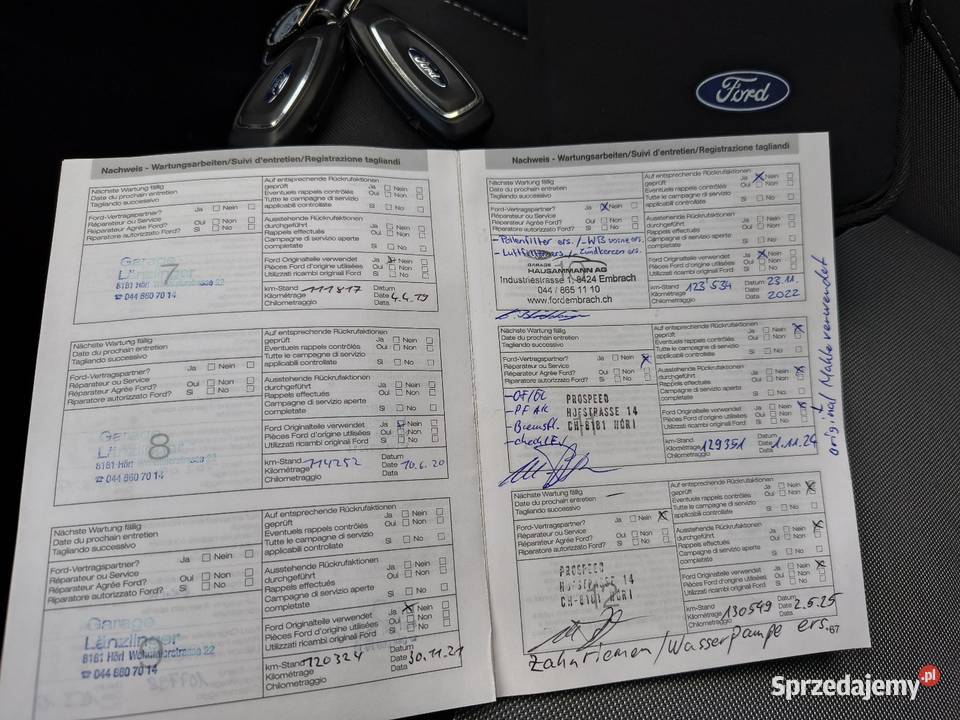 Ford
Ford
Ford
Nachweis - Wartungsarbeiten/Suivi d'entretien/Registrazione tagliandi
Nächste Wartung fällig
Date du prochain entretien
Tagliando successivo
Auf entsprechende Rückrufaktionen
geprüft Ja Nein
Eventuels rappels contrôlés Oui Non
Tutte le campagne di servizio
applicabili controllate Si No
Ford-Vertragspartner? Ja Nein
Réparateur ou Service
Réparateur Agréé Ford? Oui Non
Riparatore autorizzato Ford? Si No
Ausstehende Rückrufaktionen
durchgeführt Ja Nein
Rappels effectués Oui Non
Campagne di servizio aperte
completate Si No
Garage
Länzlinger
8181 Höri
☎ 044 860 70 14
7
Ford Originalteile verwendet Ja Nein
Pièces Ford d'origine utilisées Oui Non
Utilizzati ricambi original Ford Si No
km-Stand
Kilométrage 111817
Chilometraggio
Datum
Date 4.4.19
Data
Nächste Wartung fällig
Date du prochain entretien
Tagliando successivo
Auf entsprechende Rückrufaktionen
geprüft Ja Nein
Eventuels rappels contrôlés Oui Non
Tutte le campagne di servizio
applicabili controllate Si No
Ford-Vertragspartner? Ja Nein
Réparateur ou Service
Réparateur Agréé Ford? Oui Non
Riparatore autorizzato Ford? Si No
Ausstehende Rückrufaktionen
durchgeführt Ja Nein
Rappels effectués Oui Non
Campagne di servizio aperte
completate Si No
Garage
8181 Höri
☎ 044 860 70 14
8
Ford Originalteile verwendet Ja Nein
Pièces Ford d'origine utilisées Oui Non
Utilizzati ricambi original Ford Si No
km-Stand
Kilométrage 114252
Chilometraggio
Datum
Date 10.6.20
Data
Nächste Wartung fällig
Date du prochain entretien
Tagliando successivo
Auf entsprechende Rückrufaktionen
geprüft Ja Nein
Eventuels rappels contrôlés Oui Non
Tutte le campagne di servizio
applicabili controllate Si No
Ford-Vertragspartner? Ja Nein
Réparateur ou Service
Réparateur Agréé Ford? Oui Non
Riparatore autorizzato Ford? Si No
Ausstehende Rückrufaktionen
durchgeführt Ja Nein
Rappels effectués Oui Non
Campagne di servizio aperte
completate Si No
Garage
Länzlinger
8181 Höri
☎ 044 860 70 14
9
Ford Originalteile verwendet Ja Nein
Pièces Ford d'origine utilisées Oui Non
Utilizzati ricambi original Ford Si No
km-Stand
Kilométrage 120324
Chilometraggio
Datum
Date 30.11.21
Data
Nachweis - Wartungsarbeiten/Suivi d'entretien/Registrazione tagliandi
Nächste Wartung fällig
Date du prochain entretien
Tagliando successivo
Auf entsprechende Rückrufaktionen
geprüft Ja Nein
Eventuels rappels contrôlés Oui Non
Tutte le campagne di servizio
applicabili controllate Si No
Ford-Vertragspartner? Ja Nein
Réparateur ou Service
Réparateur Agréé Ford? Oui Non
Riparatore autorizzato Ford? Si No
Ausstehende Rückrufaktionen
durchgeführt Ja Nein
Rappels effectués Oui Non
Campagne di servizio aperte
completate Si No
- Pollenfilter ers.
- Luftfilter ers. / Zündkerzen ers.
GARAGE
HAUSAMMANN AG
Industriestrasse 1, 8424 Embrach
044 / 865 11 10
www.fordembrach.ch
Ford Originalteile verwendet Ja Nein
Pièces Ford d'origine utilisées Oui Non
Utilizzati ricambi original Ford Si No
km-Stand
Kilométrage 123 534
Chilometraggio
Datum 23.11.
Date 2022
Data
Nächste Wartung fällig
Date du prochain entretien
Tagliando successivo
Auf entsprechende Rückrufaktionen
geprüft Ja Nein
Eventuels rappels contrôlés Oui Non
Tutte le campagne di servizio
applicabili controllate Si No
Ford-Vertragspartner? Ja Nein
Réparateur ou Service
Réparateur Agréé Ford? Oui Non
Riparatore autorizzato Ford? Si No
Ausstehende Rückrufaktionen
durchgeführt Ja Nein
Rappels effectués Oui Non
Campagne di servizio aperte
completate Si No
- PF AK
- Bremsfl.
PROSPEED
HOFSTRASSE 14
CH-8181 HÖRI
Ford Originalteile verwendet Ja Nein
Pièces Ford d'origine utilisées Oui Non
Utilizzati ricambi original Ford Si No
km-Stand
Kilométrage 129351
Chilometraggio
Datum
Date 1.11.24
Data
original Mahle verwendet
Nächste Wartung fällig
Date du prochain entretien
Tagliando successivo
Auf entsprechende Rückrufaktionen
geprüft Ja Nein
Eventuels rappels contrôlés Oui Non
Tutte le campagne di servizio
applicabili controllate Si No
Ford-Vertragspartner? Ja Nein
Réparateur ou Service
Réparateur Agréé Ford? Oui Non
Riparatore autorizzato Ford? Si No
Ausstehende Rückrufaktionen
durchgeführt Ja Nein
Rappels effectués Oui Non
Campagne di servizio aperte
completate Si No
PROSPEED
HOFSTRASSE 14
CH-8181 HÖRI
Ford Originalteile verwendet Ja Nein
Pièces Ford d'origine utilisées Oui Non
Utilizzati ricambi original Ford Si No
km-Stand
Kilométrage 130549
Chilometraggio
Datum
Date 2.5.25
Data
Zahnriemen/Wasserpumpe ers.
67
Sprzedajemy.pl